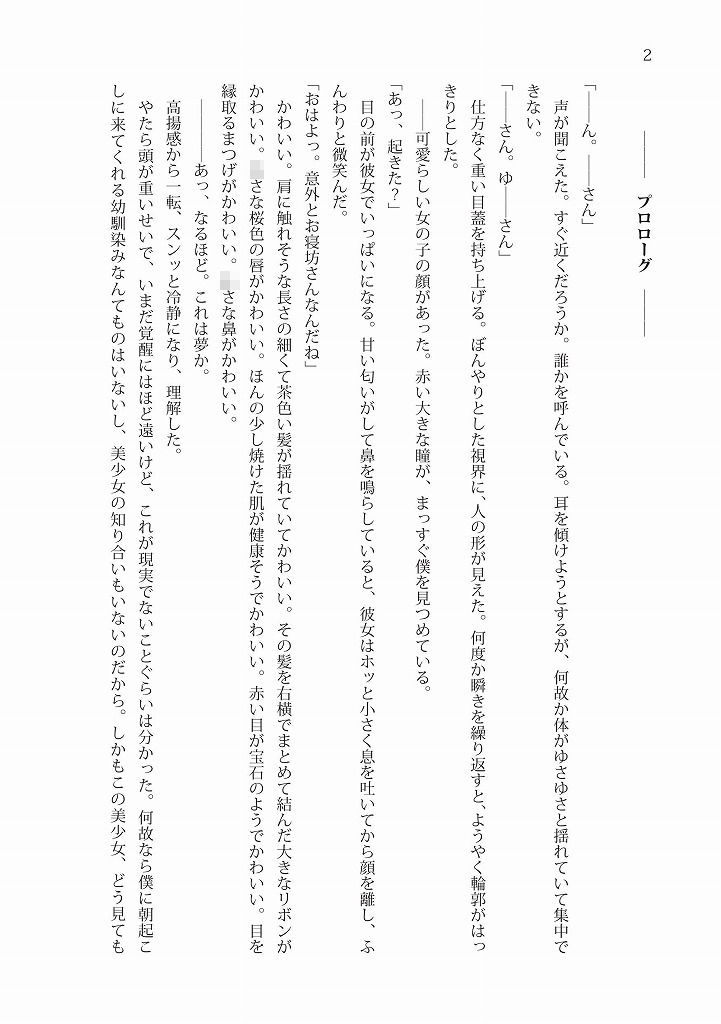 2
――― プロローグ ―――
「――ん。――さん」
声が聞こえた。すぐ近くだろうか。誰かを呼んでいる。耳を傾けようとするが、何故か体がゆさゆさと揺れていて集中で
きない。
「――さん。ゆ――さん」
仕方なく重い目蓋を持ち上げる。ぼんやりとした視界に、人の形が見えた。何度か瞬きを繰り返すと、ようやく輪郭がはっ
きりとした。
――可愛らしい女の子の顔があった。赤い大きな瞳が、まっすぐ僕を見つめている。
「あっ、起きた？」
目の前が彼女でいっぱいになる。甘い匂いがして鼻を鳴らしていると、彼女はホッと小さく息を吐いてから顔を離し、ふ
んわりと微笑んだ。
「おはよっ。意外とお寝坊さんなんだね」
かわいい。肩に触れそうな長さの細くて茶色い髪が揺れていてかわいい。その髪を右横でまとめて結んだ大きなリボンが
かわいい。さな桜色の唇がかわいい。ほんの少し焼けた肌が健康そうでかわいい。赤い目が宝石のようでかわいい。目を
縁取るまつげがかわいい。さな鼻がかわいい。
―――あっ、なるほど。これは夢か。
高揚感から一転、スンッと冷静になり、理解した。
やたら頭が重いせいで、いまだ覚醒にはほど遠いけど、これが現実でないことぐらいは分かった。何故なら僕に朝起こ
しに来てくれる幼馴染みなんてものはいないし、美少女の知り合いもいないのだから。しかもこの美少女、どう見ても